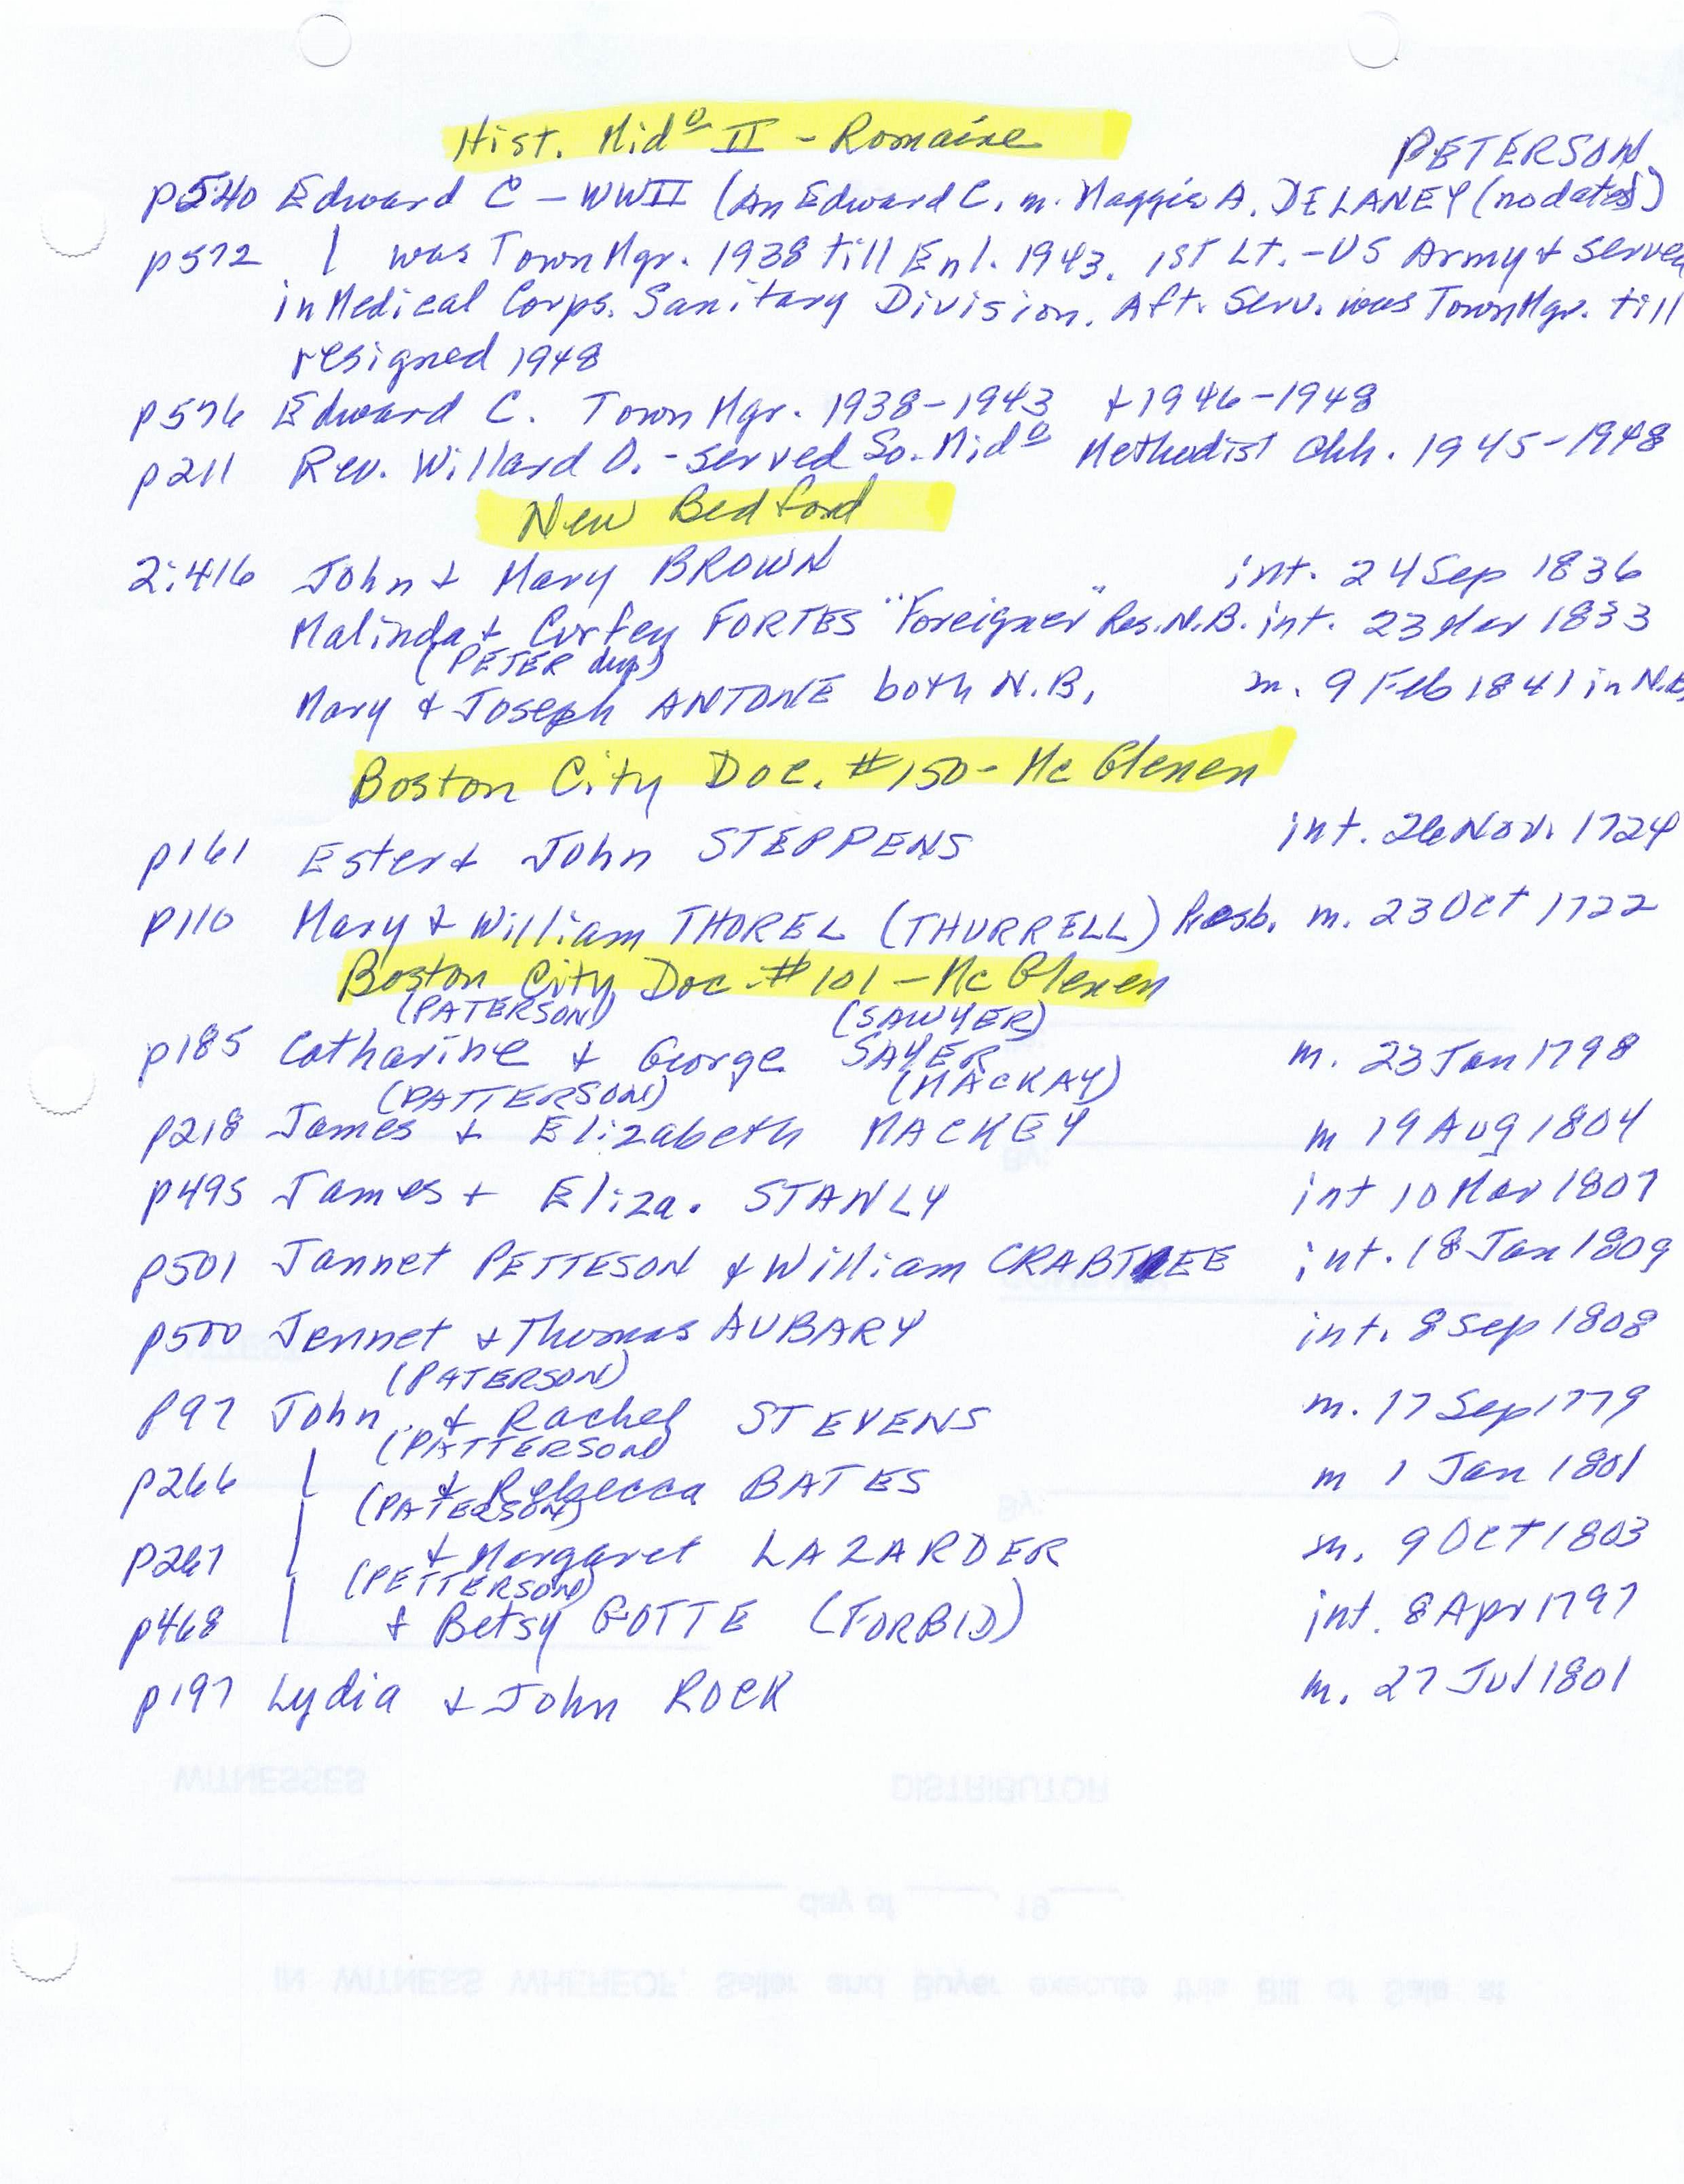 Hist. Mid⁰ II - Romaine
PETERSON
p540 Edward C - WWII (An Edward C. m. Maggie A. DELANEY (no dates)
p572 | was Town Mgr. 1938 till Enl. 1943. 1ST Lt. - US Army & Served
in Medical Corps. Sanitary Division. Aft. Serv. was Town Mgr. till
resigned 1948
p576 Edward C. Town Mgr. 1938-1943 & 1946-1948
p211 Rev. Willard D. - Served So. Mid⁰ Methodist Chh. 1945-1948
New Bedford
2:416 John & Mary BROWN int. 24 Sep 1836
Malinda & FORTES "Foreigner" Res. N.B. int. 23 Mar 1833
(PETER dup)
Mary & Joseph ANTONE both N.B. m. 9 Feb 1841 in N.B.
Boston City Doc. #150 - Mc Glenen
p161 Ester & John STEPPENS int. 26 Nov. 1724
p110 Mary & William THOREL (THURRELL) Presb. m. 23 Oct 1722
Boston City Doc. #101 - Mc Glenen
(PATERSON) (SAWYER)
p185 Catharine & George SAYER m. 23 Jan 1798
(PATTERSON) (MACKAY)
p218 James & Elizabeth MACKEY m 19 Aug 1804
p495 James & Eliza. STANLY int 10 Mar 1807
p501 Jannet PETTESON & William CRABTREE int. 18 Jan 1809
p500 Jennet & Thomas AUBARY int. 8 Sep 1808
(PATERSON)
p97 John & Rachel STEVENS m. 17 Sep 1779
(PATTERSON)
p266 | & Rebecca BATES m 1 Jan 1801
(PATERSON)
p267 | & Margaret LAZARDER m. 9 Oct 1803
(PETTERSON)
p468 | & Betsy GOTTE (FORBID) int. 8 Apr 1797
p197 Lydia & John ROCK m. 27 Jul 1801
WITNESSES DISTRIBUTOR
day of , 19
IN WITNESS WHEREOF, Seller and Buyer execute this Bill of Sale at